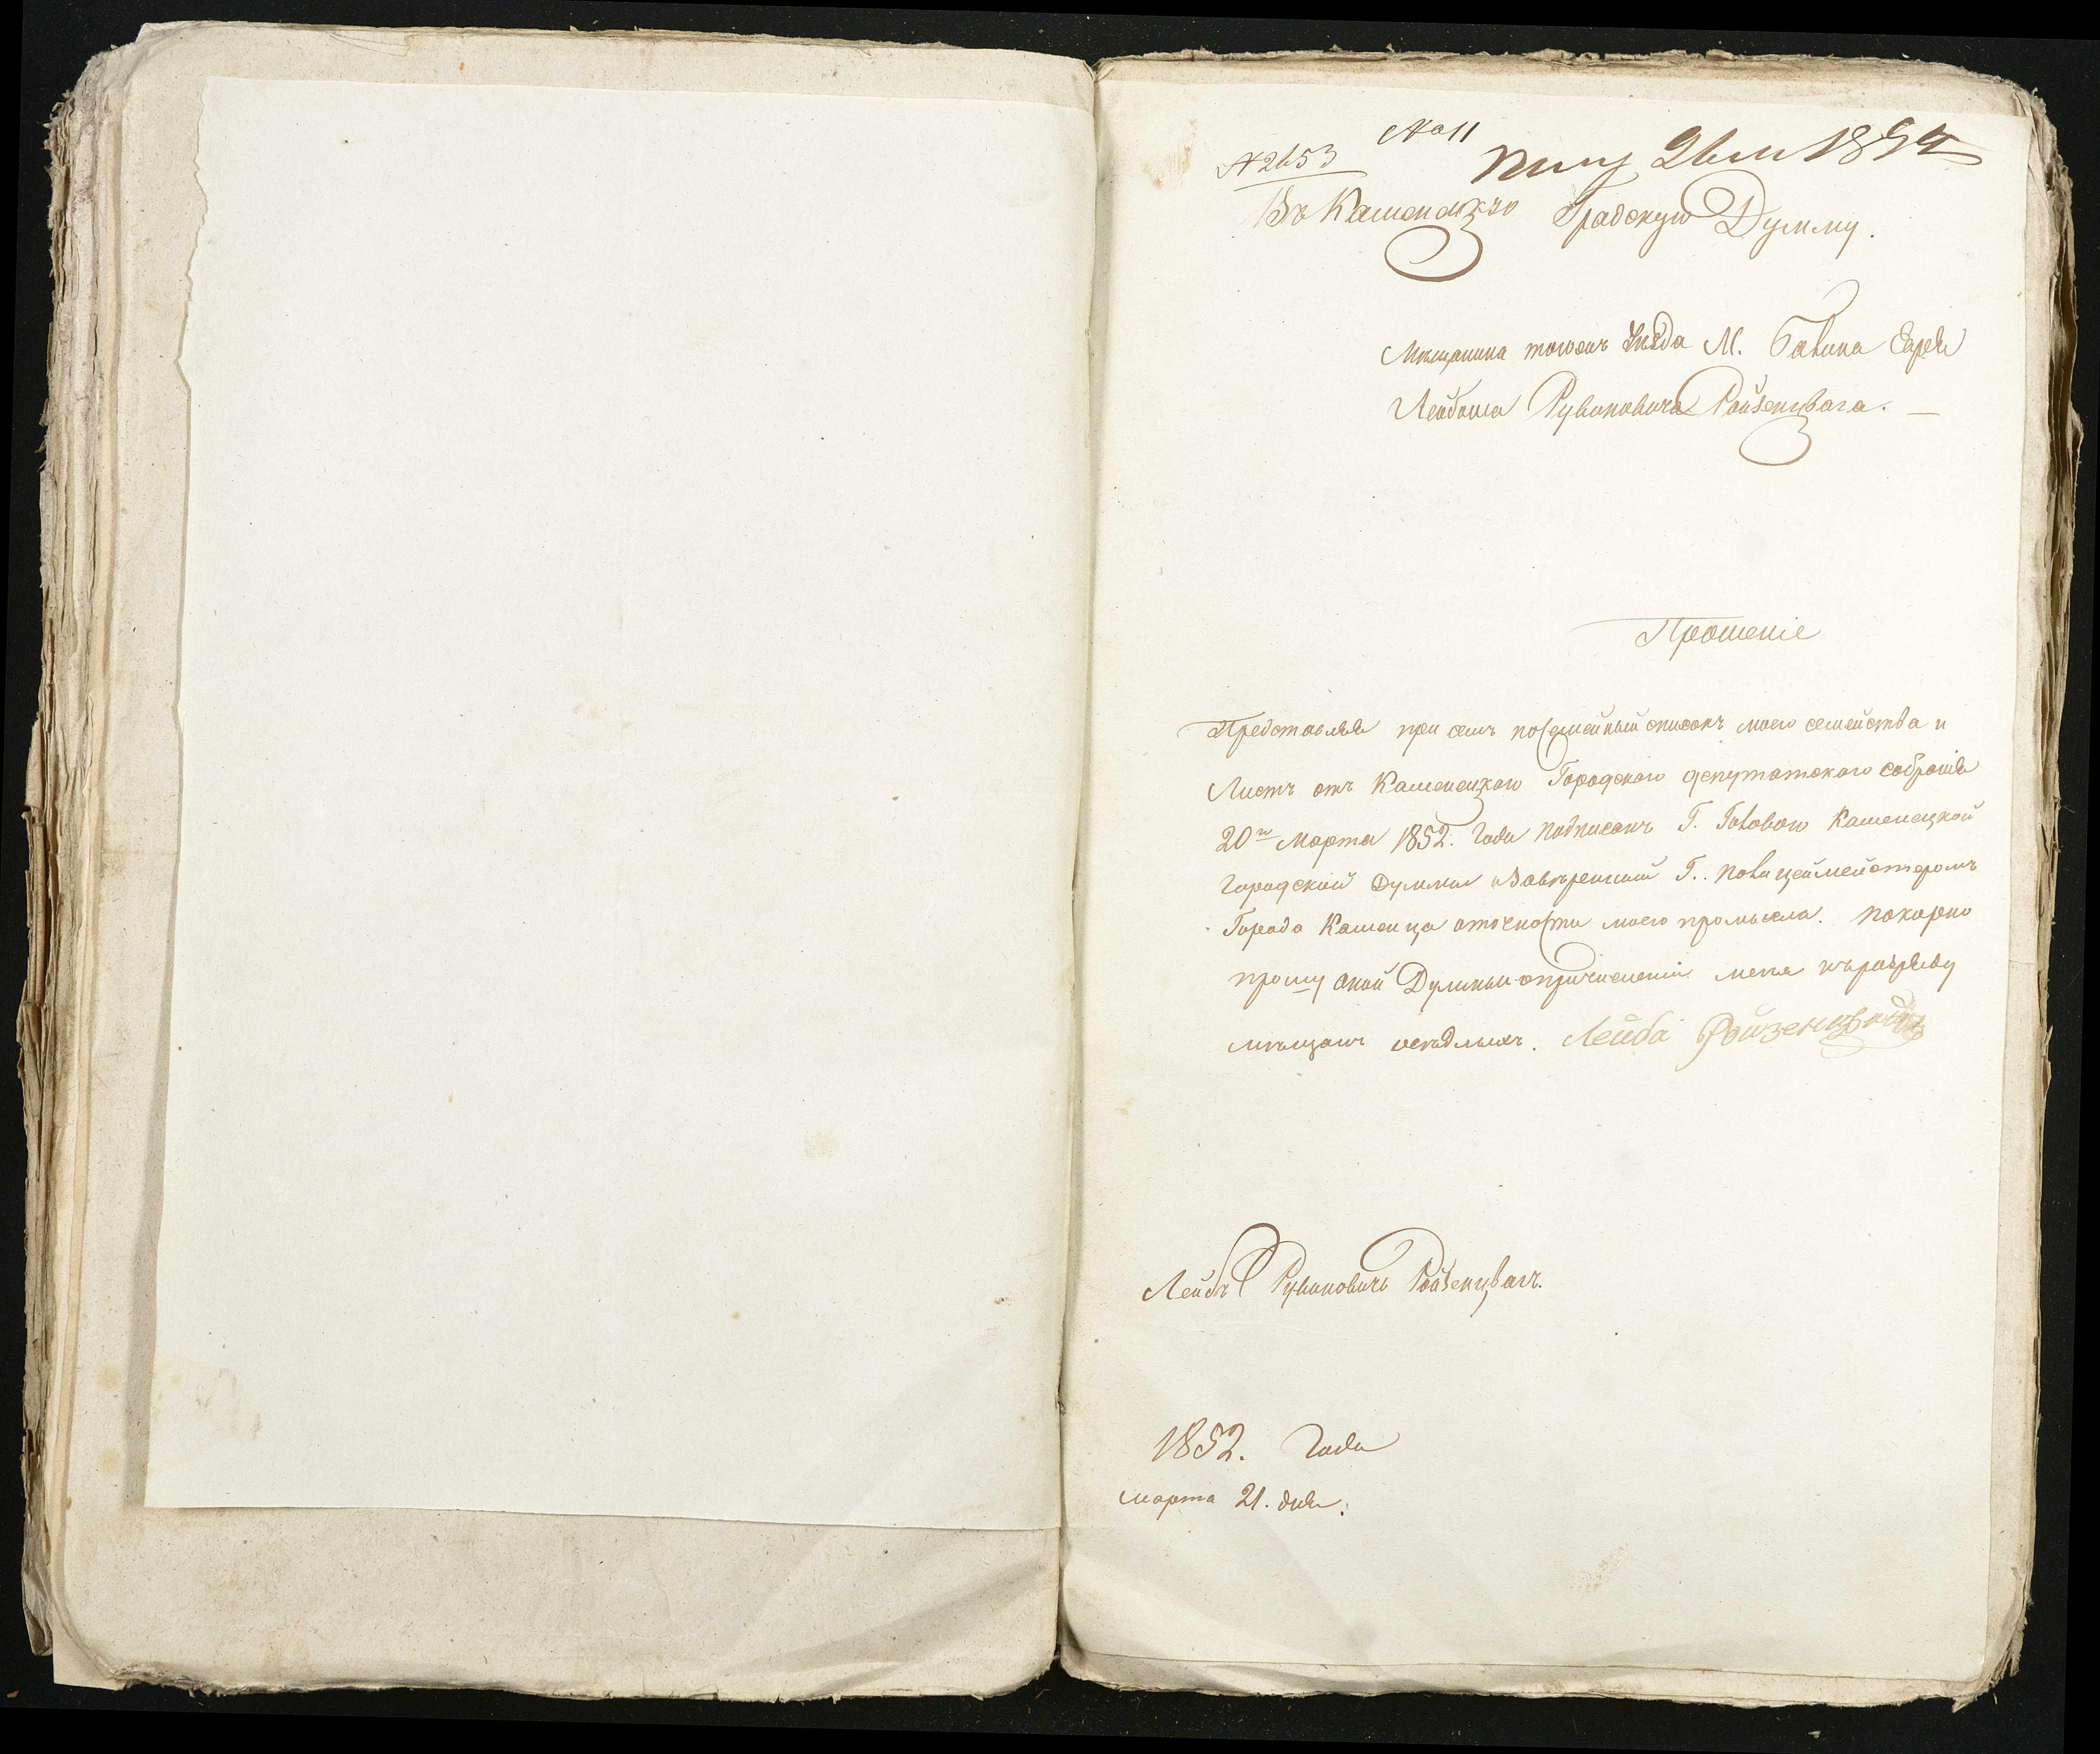 № 11
№ 2653
Въ Каменецкую Градскую Думму.
Мещанина тогожъ Уезда М. Еврея
Лейбы Рувиновича Ройзенцвага. —
Прошеніе
Представляя при семъ посемейный списокъ моего семейства и
Листъ отъ Каменецкаго Городскаго депутатскаго собранія
20го Марта 1852. Года подписанъ Г. Головою Каменецкой
Городской Думмы изавѣренный Г. Полицеймейстеромъ
Города Каменца оточности моего промысла. Покорно
прошу оной Думмы опричисленіи меня къразряду
мѣщанъ осѣдлыхъ. Лейба Ройзенцвайгъ
Лейбъ Рувиновичъ Ройзенцвагъ.
1852. Года
марта 21. дня.